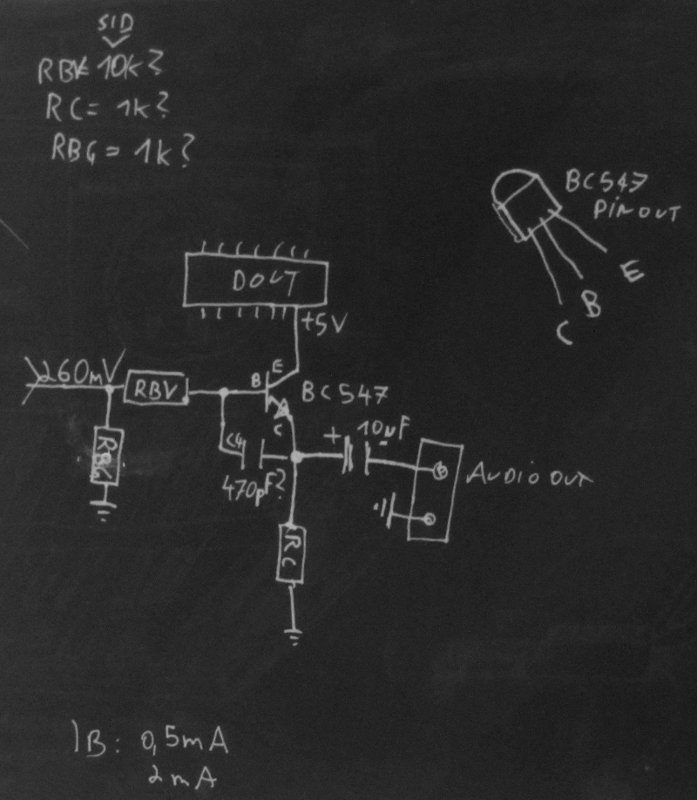 SID
RBV 10k?
RC = 1k?
RBG = 1k?
BC547
PINOUT
E
B
C
DOUT
+5V
260mV
RBV
B
E
C
BC547
RBG
470pF?
+
10µF
AUDIO OUT
RC
IB: 0,5mA
2mA